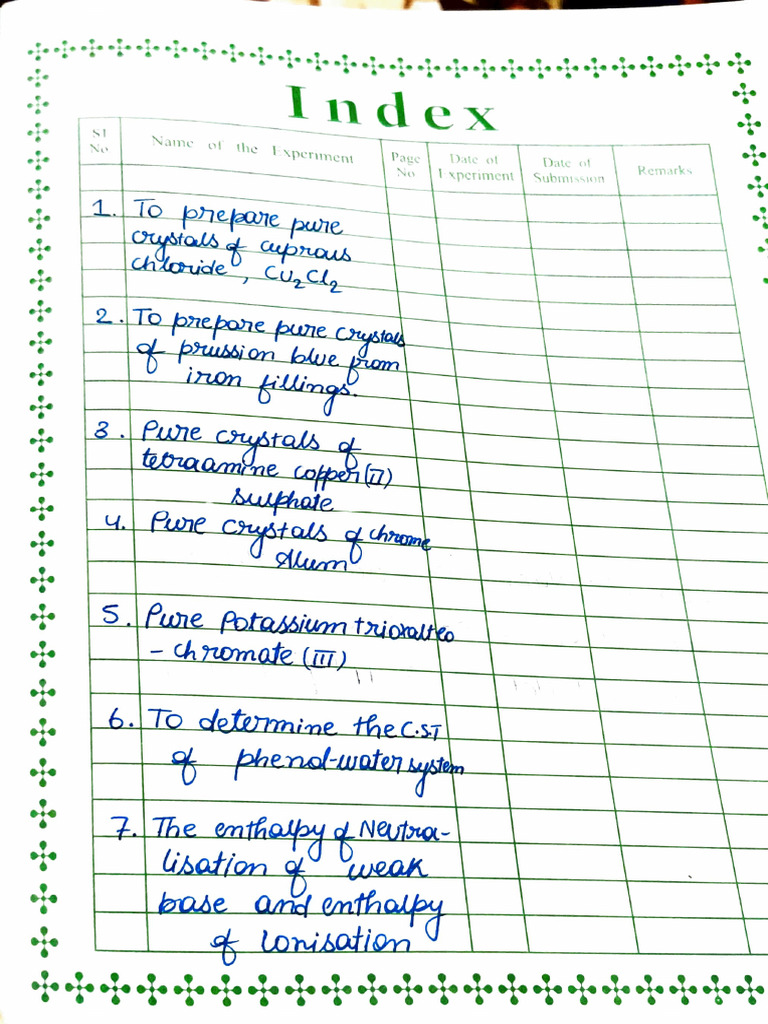 Index
Sl No
Name of the Experiment
Page No
Date of Experiment
Date of Submission
Remarks
1. To prepare pure
crystals of cuprous
chloride, Cu₂Cl₂
2. To prepare pure crystals
of prussion blue from
iron fillings.
3. Pure crystals of
tetraamine copper (II)
sulphate
4. Pure crystals of chrome
Alum
5. Pure Potassium trioxalteo
- chromate (III)
6. To determine the C.S.T
of phenol-water system
7. The enthalpy of Neutra-
lisation of weak
base and enthalpy
of Ionisation